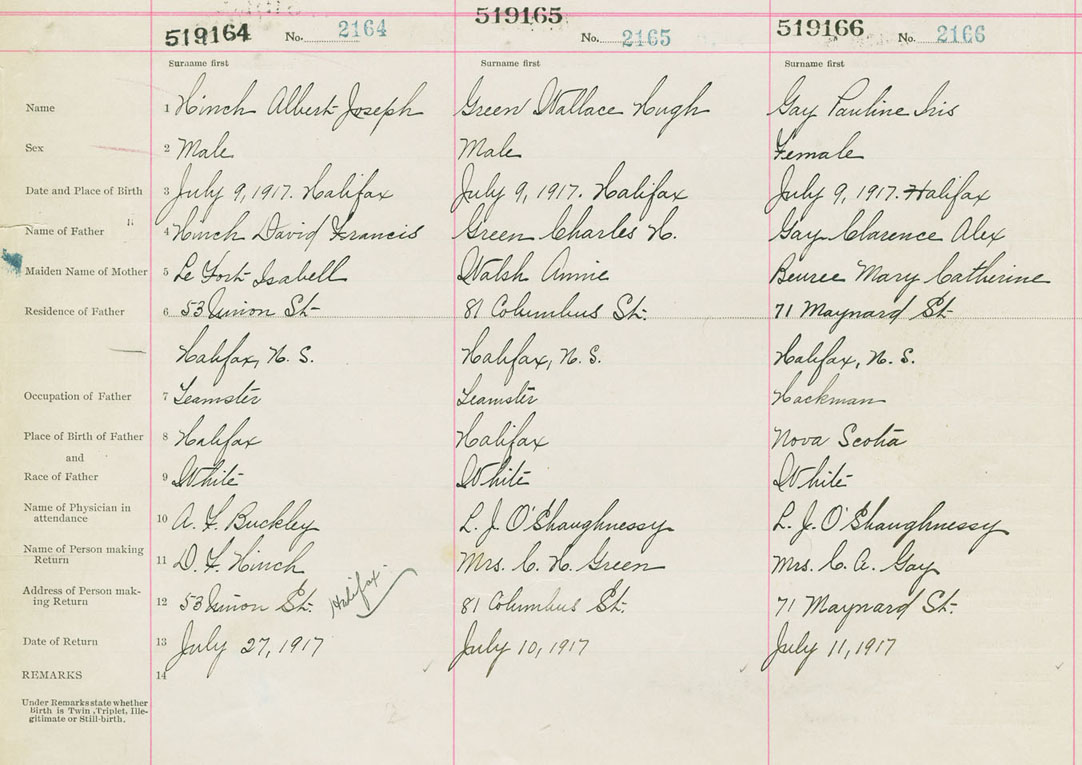 519164 No. 2164 519165 No. 2165 519166 No. 2166
Surname first Surname first Surname first
Name 1 Hinch Albert Joseph Green Wallace Hugh Gay Pauline Iris
Sex 2 Male Male Female
Date and Place of Birth 3 July 9, 1917. Halifax July 9, 1917. Halifax July 9, 1917. Halifax
Name of Father 4 Hinch David Francis Green Charles H. Gay Clarence Alex
Maiden Name of Mother 5 Le Fort Isabell Walsh Annie Mary Catherine
Residence of Father 6 53 Union St 81 Columbus St. 71 Maynard St
Halifax, N. S. Halifax, N. S. Halifax, N. S.
Occupation of Father 7 Teamster Teamster Hackman
Place of Birth of Father 8 Halifax Halifax Nova Scotia
and
Race of Father 9 White White White
Name of Physician in attendance 10 A. F. Buckley L. J. O'Shaughnessy L. J. O'Shaughnessy
Name of Person making Return 11 D. F. Hinch Mrs. C. H. Green Mrs. C. A. Gay
Address of Person mak-ing Return 12 53 Union St. Halifax. 81 Columbus St. 71 Maynard St.
Date of Return 13 July 27, 1917 July 10, 1917 July 11, 1917
REMARKS 14
Under Remarks state whether
Birth is Twin, Triplet, Ille-
gitimate or Still-birth.